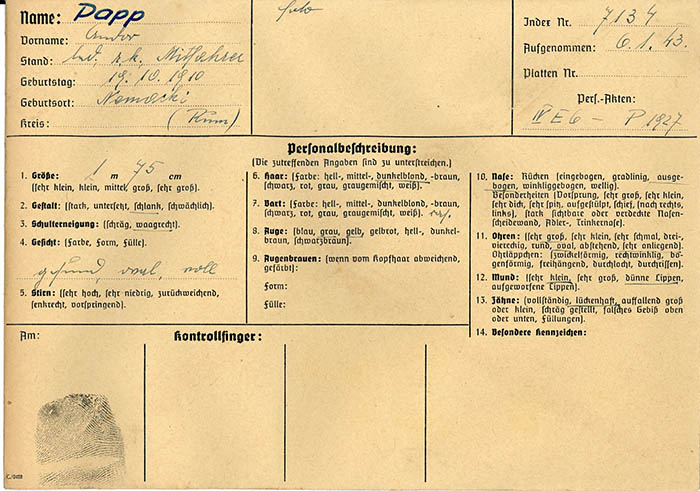 Name: Papp
Vorname: Andor
Stand: led, r.k., Mitfahrer
Geburtstag: 19. 10. 1910
Geburtsort: Nemacki
Kreis: (Rum)
foto
Index Nr. 7134
Aufgenommen: 6.1.43.
Platten Nr.
Pers.-Akten:
IV E 6 – P 1927
Personalbeschreibung:
(Die zutreffenden Angaben sind zu unterstreichen.)
1. Größe: 1 m 75 cm
(sehr klein, klein, mittel, groß, sehr groß).
2. Gestalt: (stark, untersetzt, schlank, schwächlich).
3. Schulterneigung: (schräg, waagrecht).
4. Gesicht: (Farbe, Form, Fülle).
gesund, oval, voll
5. Stirn: (sehr hoch, sehr niedrig, zurückweichend,
senkrecht, vorspringend).
6. Haar: (Farbe: hell-, mittel-, dunkelblond, -braun,
schwarz, rot, grau, graugemischt, weiß).
7. Bart: (Farbe: hell-, mittel-, dunkelblond, -braun,
schwarz, rot, grau, graugemischt, weiß).
8. Auge: (blau, grau, gelb, gelbrot, hell-, dunkel-
braun, schwarzbraun).
9. Augenbrauen: (wenn vom Kopfhaar abweichend,
gefärbt):
Form:
Fülle:
10. Nase: Rücken (eingebogen, gradlinig, ausge-
bogen, winkliggebogen, wellig).
Besonderheiten (Vorsprung, sehr groß, sehr klein,
sehr dick, sehr spitz, aufgestülpt, schief, (nach rechts,
links), stark sichtbare oder verdeckte Nasen-
scheidewand, Adler-, Trinkernase).
11. Ohren: (sehr groß, sehr klein, sehr schmal, drei-,
vierreckig, rund, oval, abstehend, sehr anliegend).
Ohrläppchen: (zwickelförmig, rechtwinklig, bo-
genförmig, freihängend, durchlocht, durchrissen).
12. Mund: (sehr klein, sehr groß, dünne Lippen,
aufgeworfene Lippen).
13. Zähne: (vollständig, lückenhaft, auffallend groß
oder klein, schräg gestellt, falsches Gebiß oben
oder unten, Füllungen).
14. Besondere Kennzeichen:
Am:
Kontrollfinger: